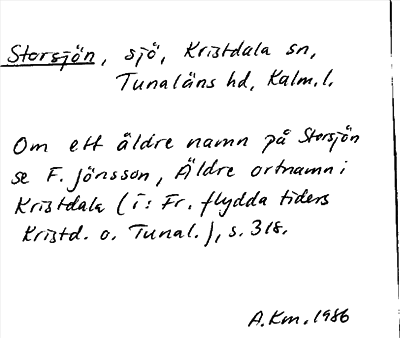 Storsjön, sjö, Kristdala sn,
Tunaläns hd, Kalm. l.
Om ett äldre namn på Storsjön
se F. Jönsson, Äldre ortnamn i
Kristdala (i: Fr. flydda tiders
Kristd. o. Tunal.), s. 318.
A. Km. 1986